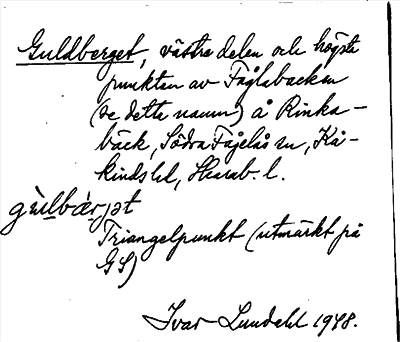 Guldberget, västra delen och högsta
punkten av Fåglabacken
(se detta namn) å Rinka-
bäck, Södra Fågelås sn, Kå-
kinds hd, Skarab. l.
gùlbæ̀rjət
Triangelpunkt (utmärkt på
GS)
Ivar Lundahl 1948.